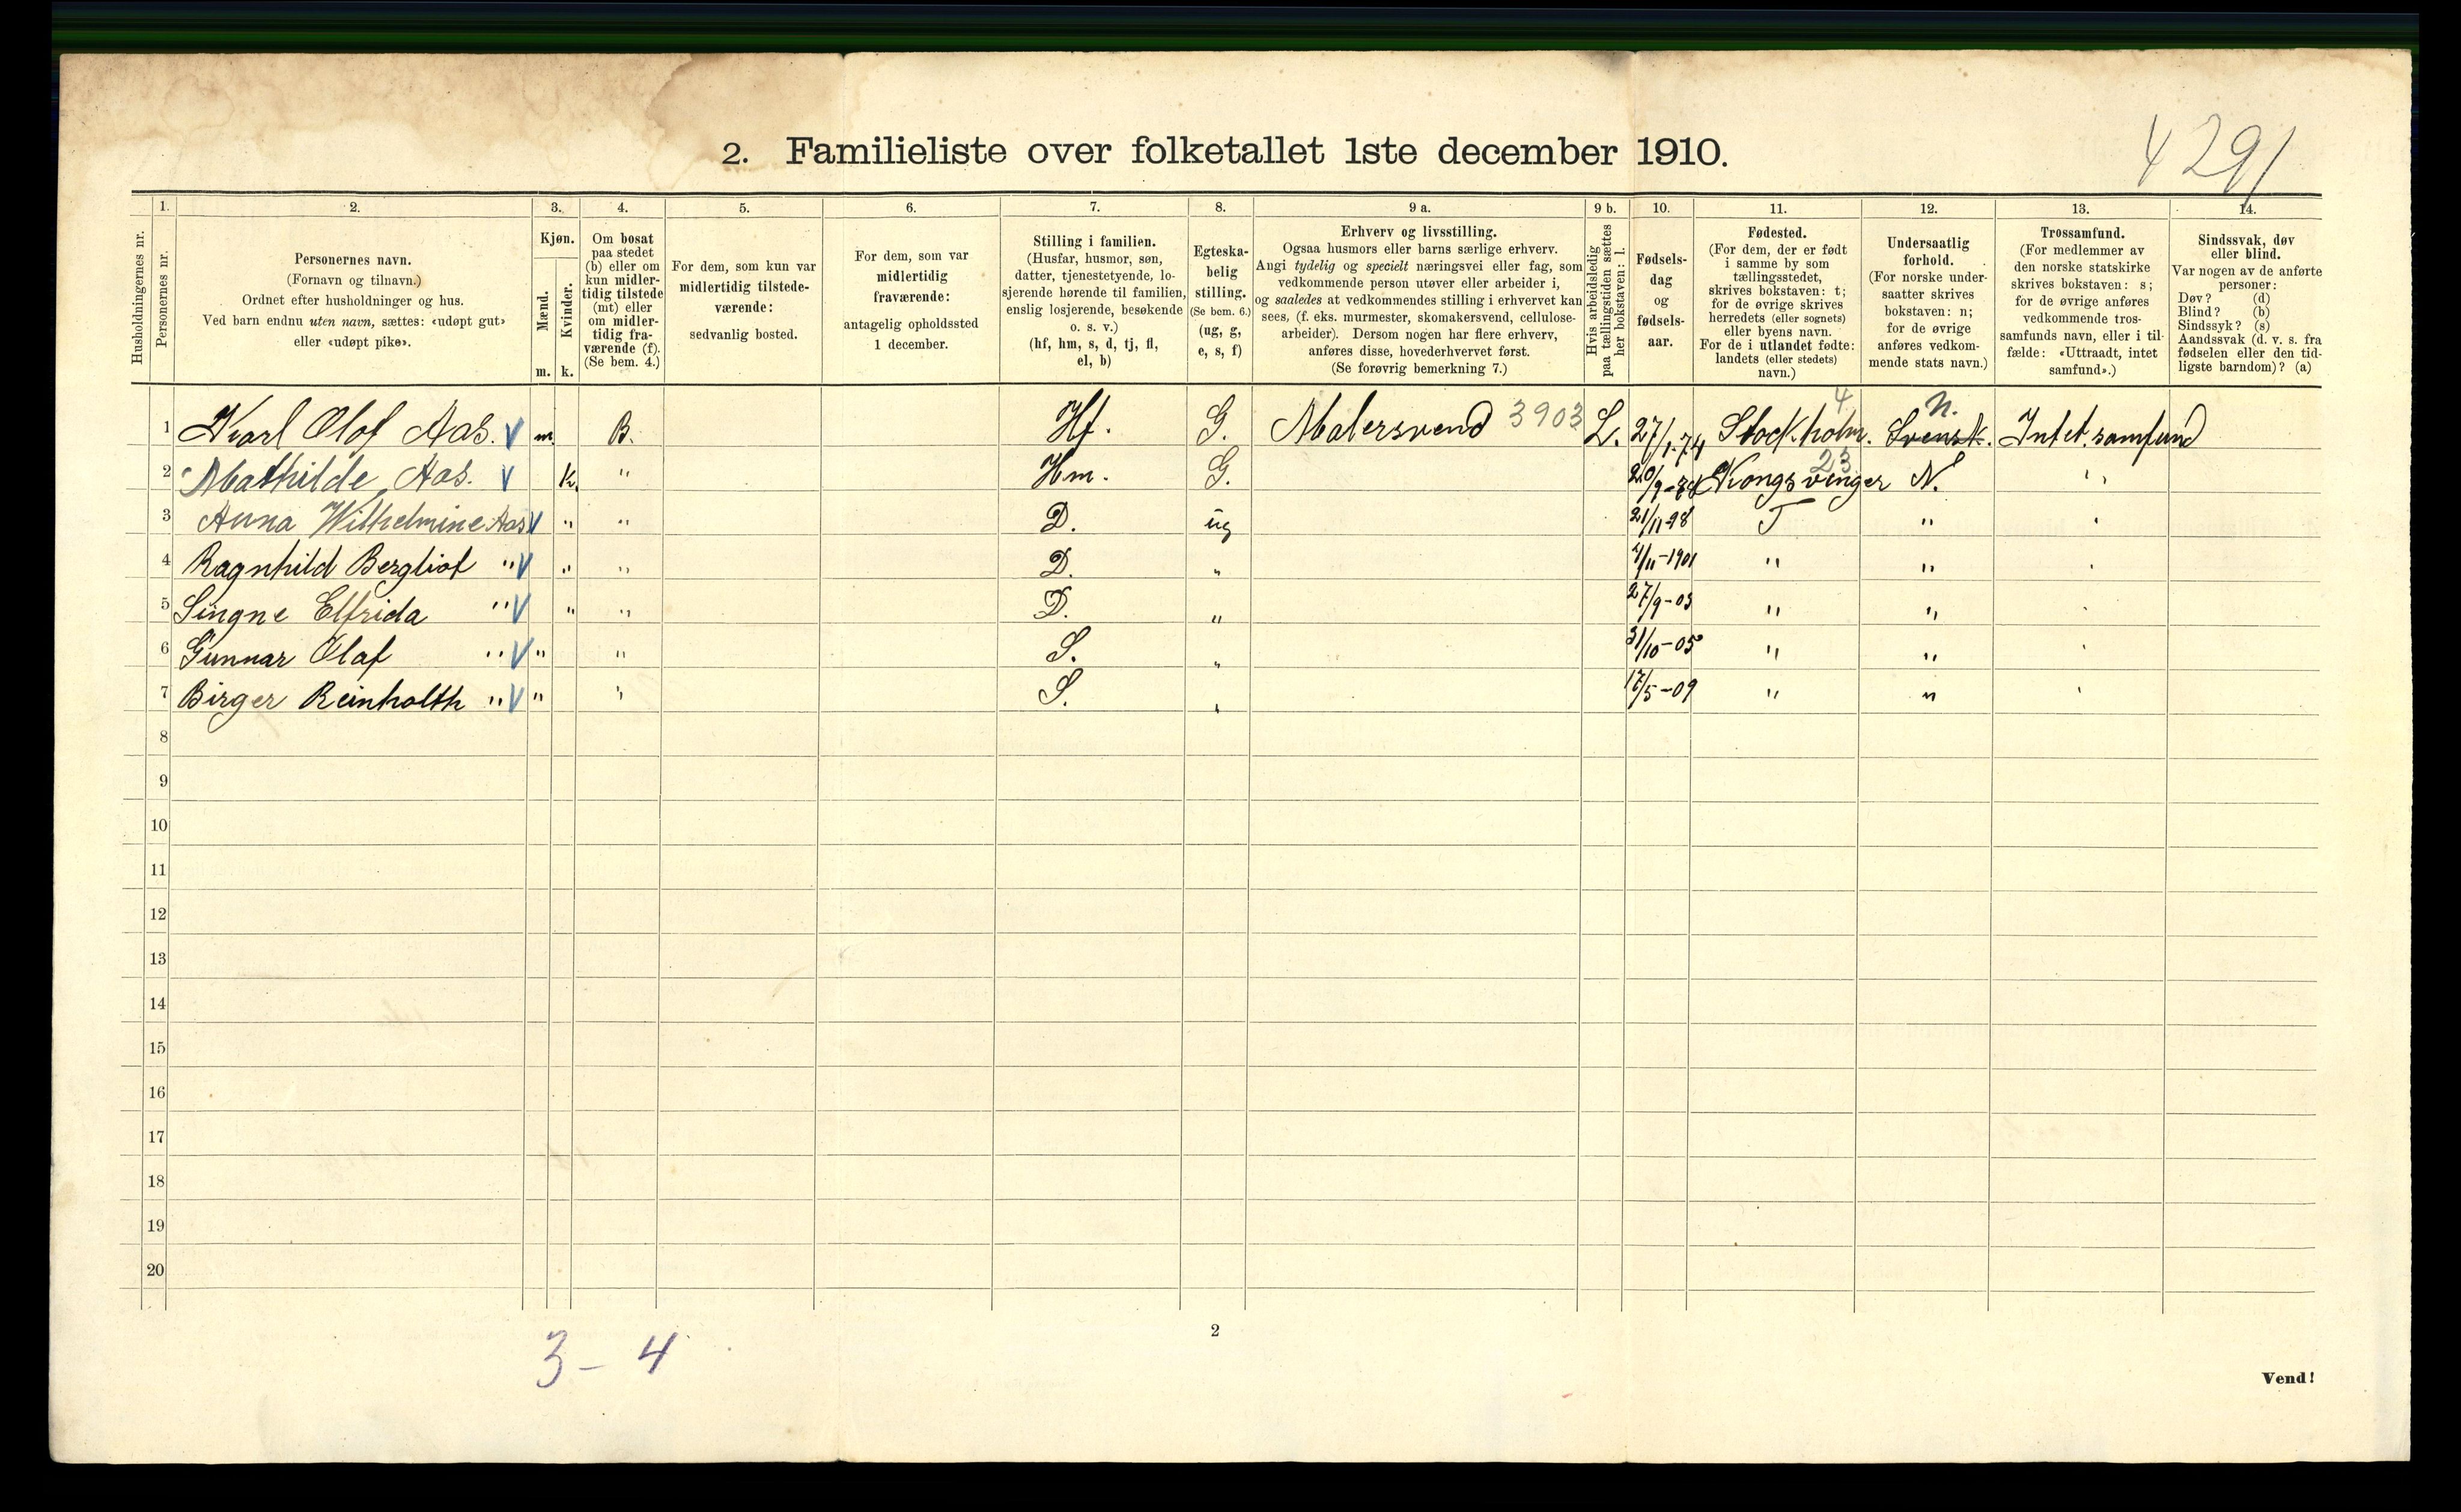 4291
2. Familieliste over folketallet 1ste december 1910.
1. 2. 3. 4. 5. 6. 7. 8. 9 a. 9 b. 10. 11. 12. 13. 14.
Husholdningernes nr.
Personernes nr.
Personernes navn.
(Fornavn og tilnavn.)
Ordnet efter husholdninger og hus.
Ved barn endnu uten navn, sættes: «udøpt gut»
eller «udøpt pike».
Kjøn.
Mænd.
Kvinder.
m. k.
Om bosat
paa stedet
(b) eller om
kun midler-
tidig tilstede
(mt) eller
om midler-
tidig fra-
værende (f).
(Se bem. 4.)
For dem, som kun var
midlertidig tilstede-
værende:
sedvanlig bosted.
For dem, som var
midlertidig
fraværende:
antagelig opholdssted
1 december.
Stilling i familien.
(Husfar, husmor, søn,
datter, tjenestetyende, lo-
sjerende hørende til familien,
enslig losjerende, besøkende
o. s. v.)
(hf, hm, s, d, tj, fl,
el, b)
Egteska-
belig
stilling.
(Se bem. 6.)
(ug, g,
e, s, f)
Erhverv og livsstilling.
Ogsaa husmors eller barns særlige erhverv.
Angi tydelig og specielt næringsvei eller fag, som
vedkommende person utøver eller arbeider i,
og saaledes at vedkommendes stilling i erhvervet kan
sees, (f. eks. murmester, skomakersvend, cellulose-
arbeider). Dersom nogen har flere erhverv,
anføres disse, hovederhvervet først.
(Se forøvrig bemerkning 7.)
Hvis arbeidsledig
paa tællingstiden sættes
her bokstaven: l.
Fødsels-
dag
og
fødsels-
aar.
Fødested.
(For dem, der er født
i samme by som
tællingsstedet,
skrives bokstaven: t;
for de øvrige skrives
herredets (eller sognets)
eller byens navn.
For de i utlandet fødte:
landets (eller stedets)
navn.)
Undersaatlig
forhold.
(For norske under-
saatter skrives
bokstaven: n;
for de øvrige
anføres vedkom-
mende stats navn.)
Trossamfund.
(For medlemmer av
den norske statskirke
skrives bokstaven: s;
for de øvrige anføres
vedkommende tros-
samfunds navn, eller i til-
fælde: «Uttraadt, intet
samfund».)
Sindssvak, døv
eller blind.
Var nogen av de anførte
personer:
Døv? (d)
Blind? (b)
Sindssyk? (s)
Aandssvak (d. v. s. fra
fødselen eller den tid-
ligste barndom)? (a)
4 n.
1 Karl Olof Aas. V m. B. Hf. G. Malersvend 3903 L. 27/1-74 Stockholm. Svensk. Intet. samfund
23
2 Mathilde Aas. V k. " Hm. G. Kongsvinger N. "
3 Anna Wilhelmine Aas V " " D. ug 21/11-98 T " "
4 Ragnhild Bergliot " V " " D. " 4/11-1901 " " "
5 Singne Elfrida " V " " D. " 27/9-03 " " "
6 Gunnar Olaf " V " " S. " 31/10-05 " " "
7 Birger Reinholth " V " " S. " 17/5-09 " " "
8
9
10
11
12
13
14
15
16
17
18
19
20
3 - 4
2
Vend!